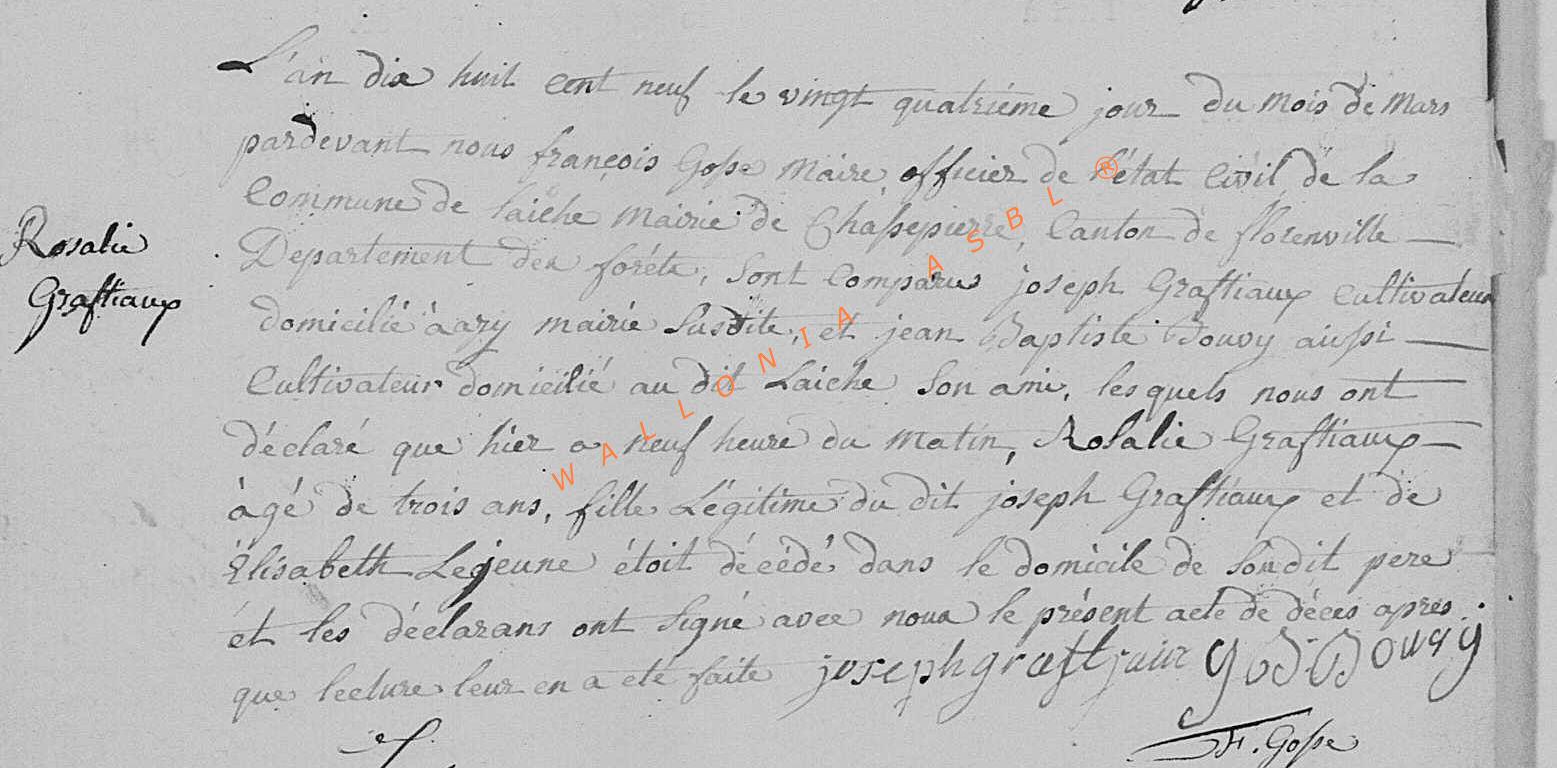 Rosalie
Graftiaux
L'an dix huit cent neuf le vingt quatriéme jour du mois de mars
pardevant nous françois Gosse maire, officier de l'état Civil de la
Commune de laiche mairie de Chassepierre, Canton de florenville
Departement des foréts, sont comparus joseph Graftiaux cultivateur
domicilié à azy mairie susdite, et jean Baptiste Bouvy aussi
Cultivateur domicilié au dit Laiche son ami, les quels nous ont
déclaré que hier a neuf heure du matin, Rosalie Graftiaux
àgé de trois ans, fille Légitime du dit joseph Graftiaux et de
Élisabeth Lejeune étoit décédé dans le domicile de sondit pere
et les déclarans ont signé avec nous le présent acte de décès apres
que lecture leur en a eté faite joseph graftjaux Bouvy
F. Gosse
WALLONIA ASBL ®